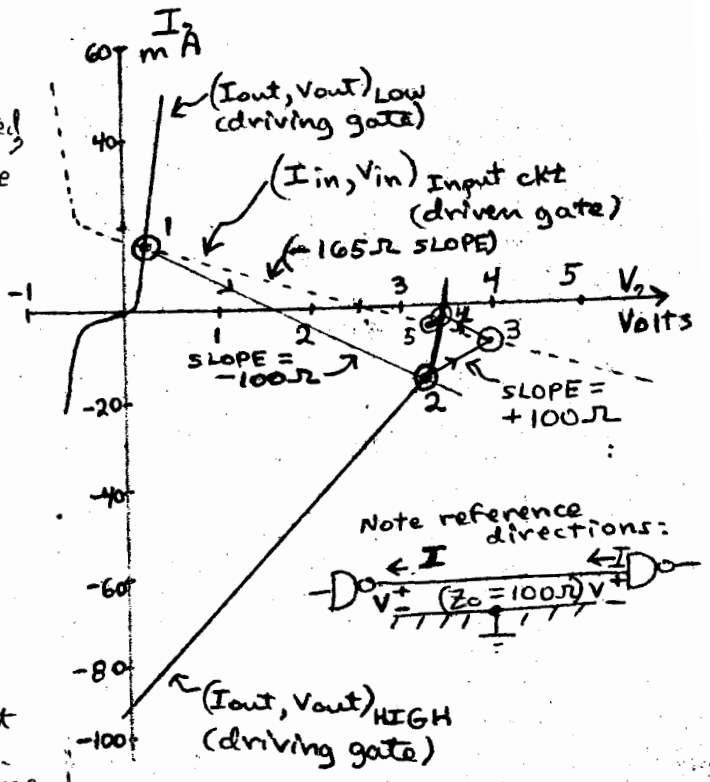 I,
mA
60
(Iout, Vout) LOW
(driving gate)
40
(Iin, Vin) Input ckt
(driven gate)
(-165Ω SLOPE)
1
-1
1
2
3
4
5
V,
Volts
5
4
3
SLOPE =
-100Ω
2
SLOPE =
+100Ω
-20
-40
-60
-80
-100
:
Note reference
directions:
I
I
V + -
(Zo = 100Ω)
V + -
(Iout, Vout) HIGH
(driving gate)